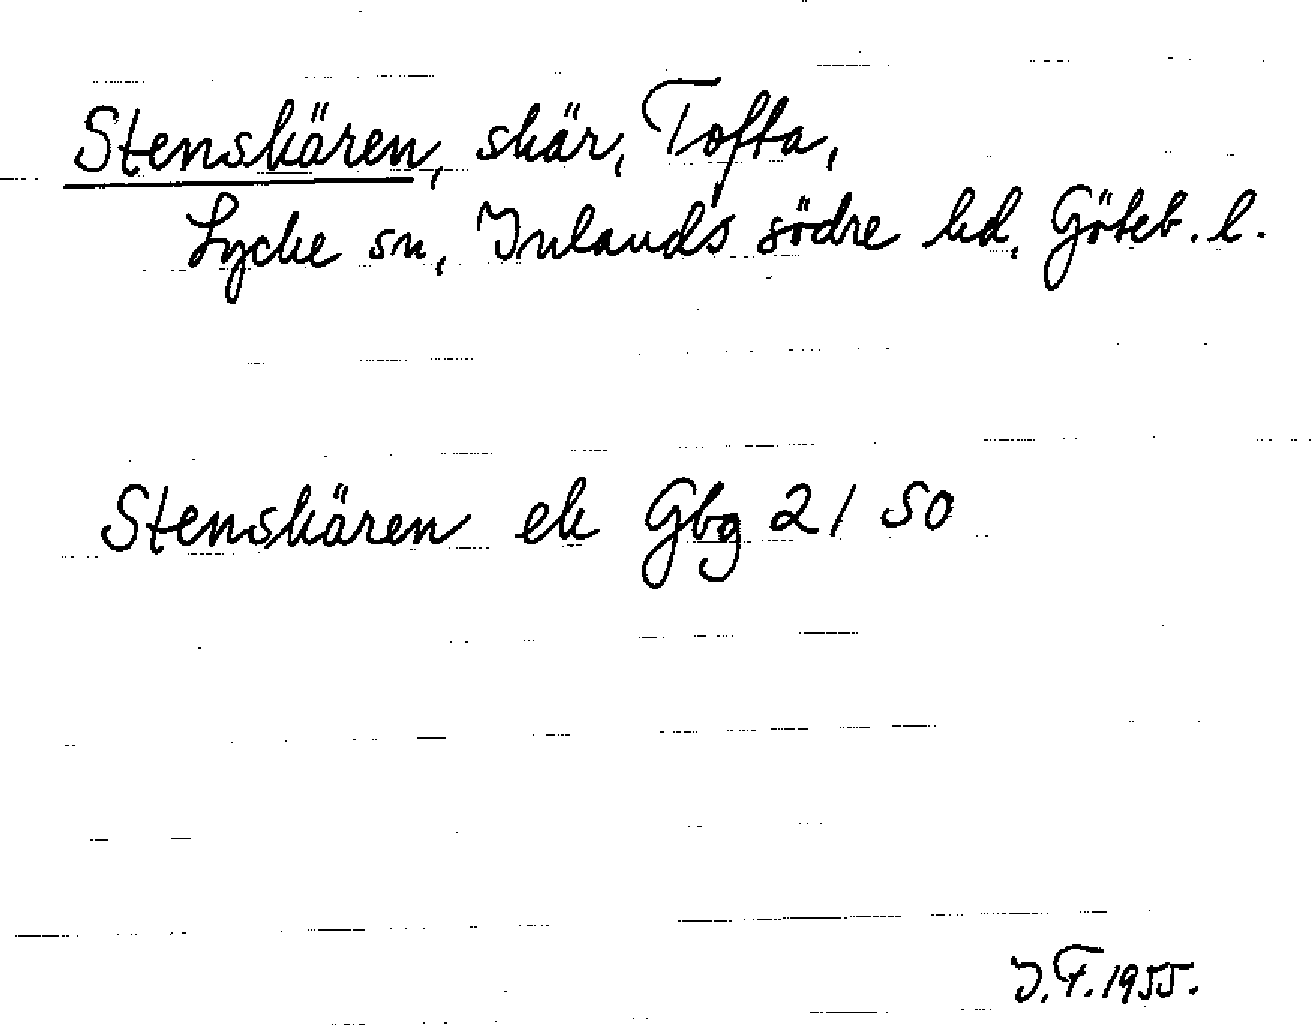 Stenskären, skär, Tofta,
Lycke sn, Inlands södre hd, Göteb. l.
Stenskären ek Gbg 2/ SO
I.F. 1955.